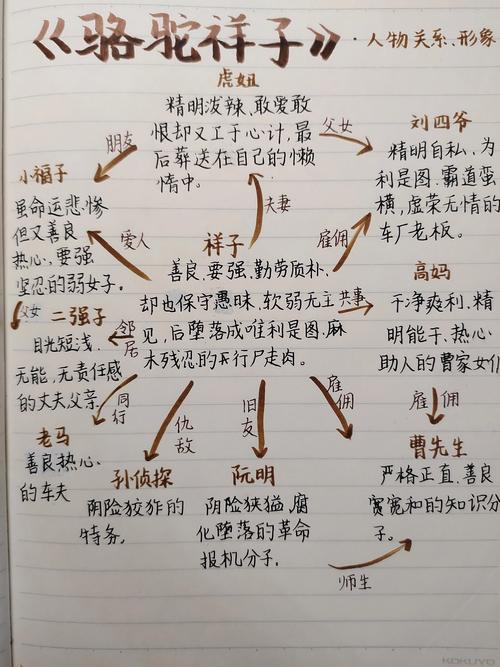 《骆驼祥子》·人物关系、形象
虎妞
精明泼辣、敢爱敢
恨却又工于心计,最
后葬送在自己的懒
惰中。
父女
刘四爷
精明自私、为
利是图.霸道蛮
横,虚荣无情的
车厂老板。
朋友
小福子
虽命运悲惨
但又善良
热心、要强
坚忍的弱女子。
爱人
夫妻
雇佣
祥子
善良、要强、勤劳质朴、
却也保守愚昧、软弱无主
见,后堕落成唯利是图、麻
木残忍的行尸走肉。
共事
高妈
干净爽利、精
明能干、热心
助人的曹家女
父女
二强子
目光短浅、
无能,无责任感
的丈夫父亲
邻居
同行
老马
善良热心、
的车夫
仇敌
孙侦探
阴险狡诈的
特务。
旧友
阮明
阴险狭猖、腐
化堕落的革命
投机分子.
雇佣
雇佣
曹先生
严格正直、善良
宽和的知识分
子。
师生
KOKUYO